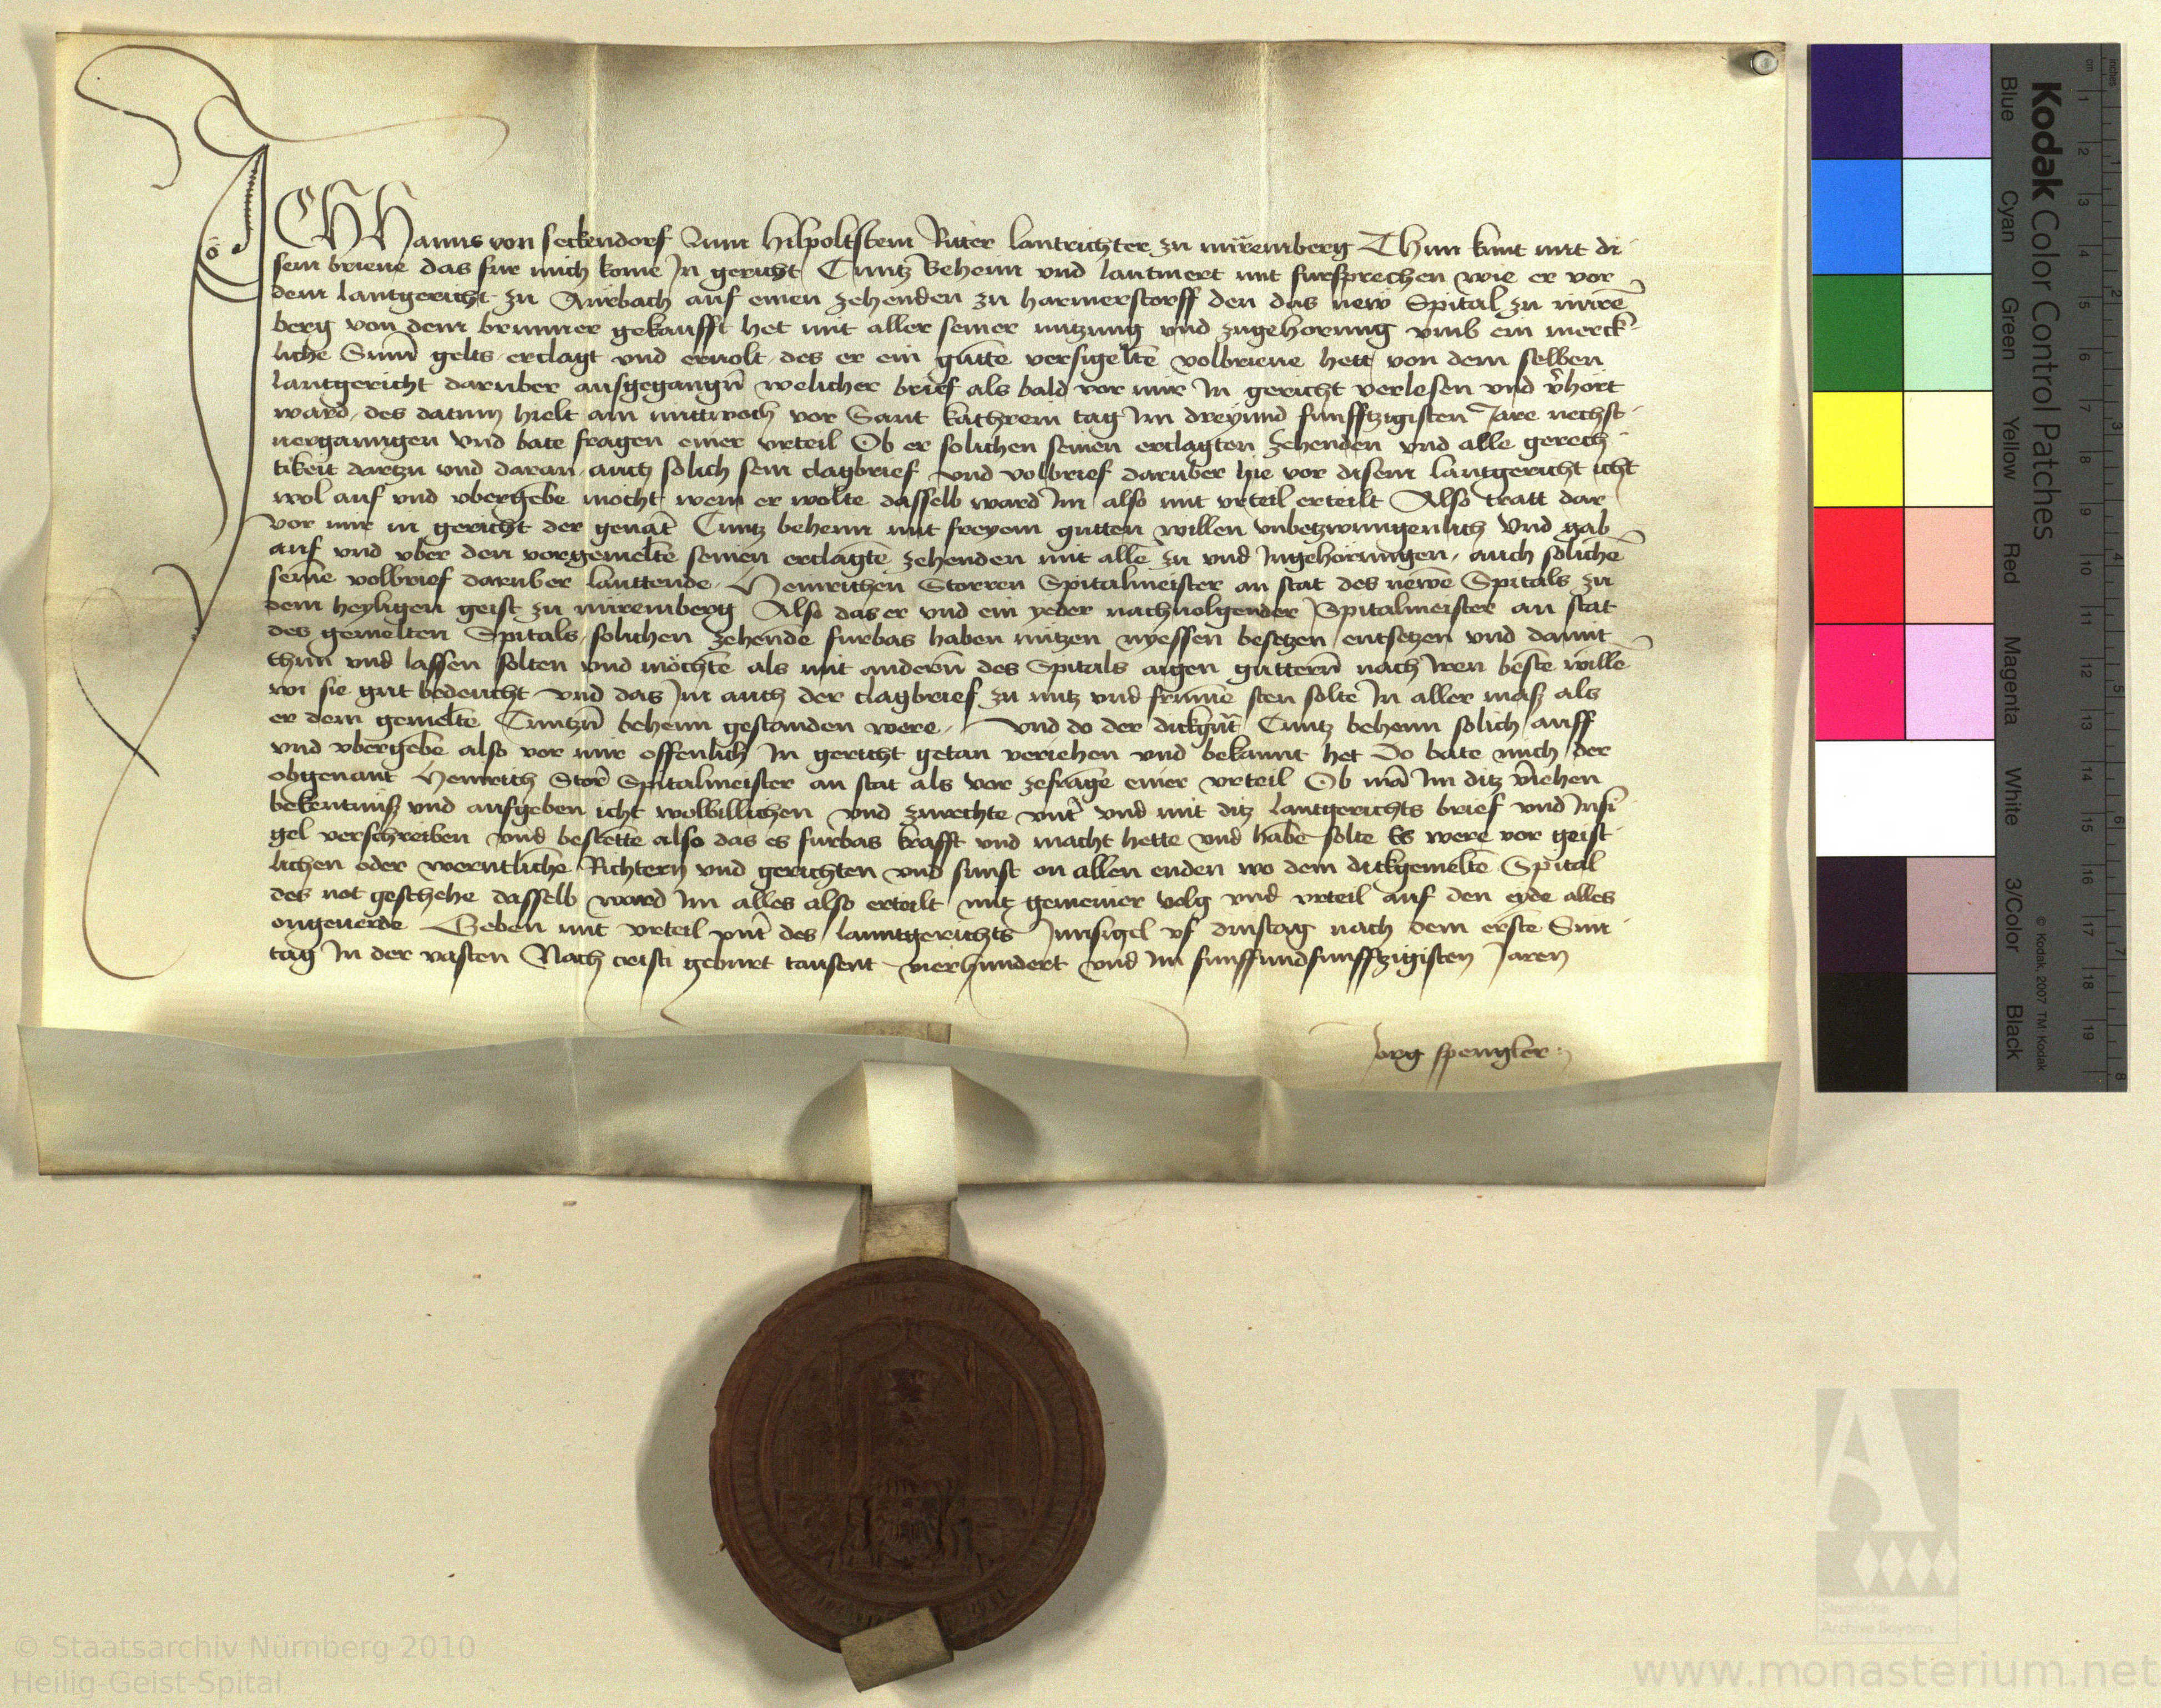 ICH Hanns von seckendorf Zum Hilpoltstein Ritter lantrichter zu nuremberg Thun kunt mit di-
sem brieue das fur mich kome In gericht Cuntz Beheim und lautmert mit fursprechen wie er vor
dem lantgericht zu Aurbach auf einen zehenden zu harmerstorff den das new Spital zu nure̅
berg von dem brunner gekaufft het mit aller seiner nutzung und zugehorung vmb ein merck-
liche Sum̅ gelts erclagt und eruolt des er ein gutte̅ versigelte̅ volbrieue hett von dem selben
lantgericht daruber ausgegangn̅ welicher brief als bald vor mir In gericht verlesen und v̅hort
ward, des datum hielt am mittwoch vor Sant kathrein tag Im dreyund funfftzigisten Jare nechst-
uergangen vnd bate fragen einer vrteil Ob er solichen seinen erclagten zehenden vnd alle gerech-
tikeit dartzu und daran, auch solich sein clagbrief vnd volbrief daruber hie vor disem lantgericht icht
wol auf und vbergebe̅ mocht wem er wolte dasselb ward Im also mit vrteil erteilt Also tratt dar
vor mir in gericht der gena̅t Cuntz beheim mit freyem gutten willen vnbetzwungenlich Vnd gab
auf vnd vber den vorgemelte̅ seinen erclagte̅ zehenden mit alle̅ zu vnd Ingehorungen, auch soliche̅
seine̅ volbrief daruber lauttende, Heinrichen Storren Spitalmeister an stat des newe̅ Spitals zu
dem heyligen geist zu nuremberg Also das er vnd ein yeder nachuolgender Spitalmeister an stat
des gemelten Spitals, solichen zehende̅ furbas haben nutzen nyessen besetzen entsetzen vnd damit
thun vnd lassen solten vnd mochte̅ als mit andern̅ des Spitals aigen guttern̅ nach Iren beste̅ wille̅
wi sie gut bedeucht vnd das Im auch der clagbrief zu nutz vnd frume̅ sten solte In aller mass als
er dem gemelte̅ Cuntzn̅ beheim gestanden were, Vnd do der dickgn̅t Cuntz beheim solich auff
vnd vbergebe̅ also vor mir offenlich In gericht getan veriehen vnd bekannt het Do bate mich der
obgenant Heinrich Stor̅ Spitalmeister an stat als vor zefrage̅ einer vrteil Ob ma̅ Im ditz v̅iehen
bekentnuss vnd aufgeben icht wolbillichen vnd zurechte vnt̅ vnd mit ditz lantgerichts brief vnd Insi-
gel verschreiben vnd bestette also das es furbas krafft vnd macht hette vnd habe̅ solte Es were vor geist-
lichen oder werntliche̅ Richtern vnd gerichten vnd sunst on allen enden wo dem dickgemelte̅ Spital
des not geschehe dasselb ward Im alles also erteilt mit gemeiner volg vnd vrteil auf den eyde alles
ongeuerde Geben mit vrteil vnt̅ des lanntgerichts Innsigel vf dinstag nach dem erste̅ Sun-
tag In der vasten Nach cristi geburt tausent vierhundert vnd Im funffundfunfftzigisten Jaren
Jorg spengler
Kodak Color Control Patches
Blue Cyan Green Yellow Red Magenta White 3/Color Black
© Kodak, 2007 TM: Kodak
cm 1 2 3 4 5 6 7 8 9 10 11 12 13 14 15 16 17 18 19
inches 1 2 3 4 5 6 7 8
Staatliche
Archive Bayerns
© Staatsarchiv Nürnberg 2010
Heilig-Geist-Spital
www.monasterium.net